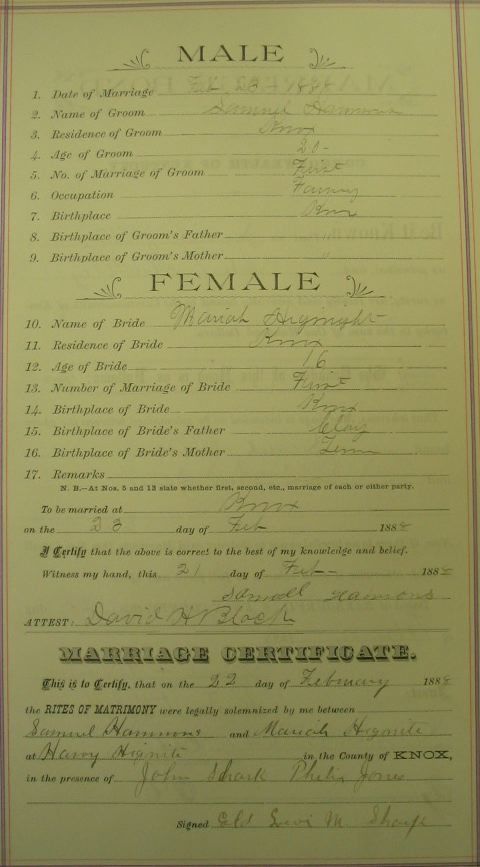 MALE
1. Date of Marriage Feb 23 188
2. Name of Groom Samuel Hammons
3. Residence of Groom Knox
4. Age of Groom 20-
5. No. of Marriage of Groom First
6. Occupation
7. Birthplace Knox
8. Birthplace of Groom's Father "
9. Birthplace of Groom's Mother "
FEMALE
10. Name of Bride Mariah
11. Residence of Bride Knox
12. Age of Bride 16
13. Number of Marriage of Bride First
14. Birthplace of Bride Knox
15. Birthplace of Bride's Father Clay
16. Birthplace of Bride's Mother Tenn
17. Remarks
N. B.—At Nos. 5 and 13 state whether first, second, etc., marriage of each or either party.
To be married at Knox
on the 23 day of Feb 188
I Certify that the above is correct to the best of my knowledge and belief.
Witness my hand, this 21 day of Feb 188
Hammons
ATTEST: David H Black
MARRIAGE CERTIFICATE.
This is to Certify, that on the 22 day of February 188
the RITES OF MATRIMONY were legally solemnized by me between
Samuel Hammons and Mariah Hignite
at Harvy Hignite in the County of KNOX,
in the presence of John Jones
Signed Eld Levi M